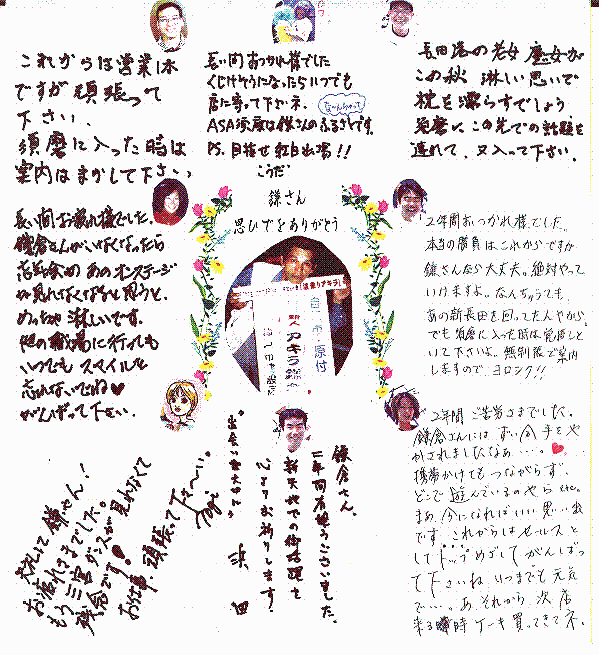 これからは営業1本
ですが頑張って
下さい。
須磨に入った時は
案内はまかして下さい
長い間おつかれ様でした
くじけそうになったらいつでも
店に寄って下さいネ。
なーんちゃって
ASA須磨は鎌さんのふるさとです。
PS. 目指せ紅白出場!!
こうだ
長田港の老女 魔女が
この秋 淋しい思いで
枕を濡らすでしょう
須磨に、この先での話題を
連れて、又入って下さい。
鎌さん
思いでをありがとう
長い間お疲れ様でした。
鎌倉さんがいなくなったら
あのオンステージ
が見れなくなると思うと、
めっちゃ淋しいです。
他の職場に行っても
いつでも スマイルを
忘れないでね♥
がんばって下さい。
2年間おつかれ様でした。
本当の勝負はこれからですが
鎌さんなら大丈夫。絶対やって
いけますよ。なんちゅうても、
あの新長田を回ってた人やから。
でも須磨に入った時は覚悟しと
いて下さいよ。無制限で案内
しますので ヨロシク!!
原付
アキラ鎌
2年間ご苦労さまでした。
鎌倉さんには ずい分 手をや
かされましたなぁ・・・。
携帯かけてもつながらず、
どこで遊んでいるのやら etc.
まぁ、今になればいい思い出
です。これからはセールスと
してトップめざしてがんばっ
て下さいね。いつまでも元気
で・・・。あ、それから 次 店
来る時 ケーキ買ってきてネ.
鎌倉さん。
二年間有難うございました。
新天地での御活躍を
心よりお祈りします。
"出会いを大切に"
浜田
元気にて鎌やん!
お疲れさまでした。
もう三宮ダンスが見れなくて
残念です!
お仕事、頑張って下さーい。